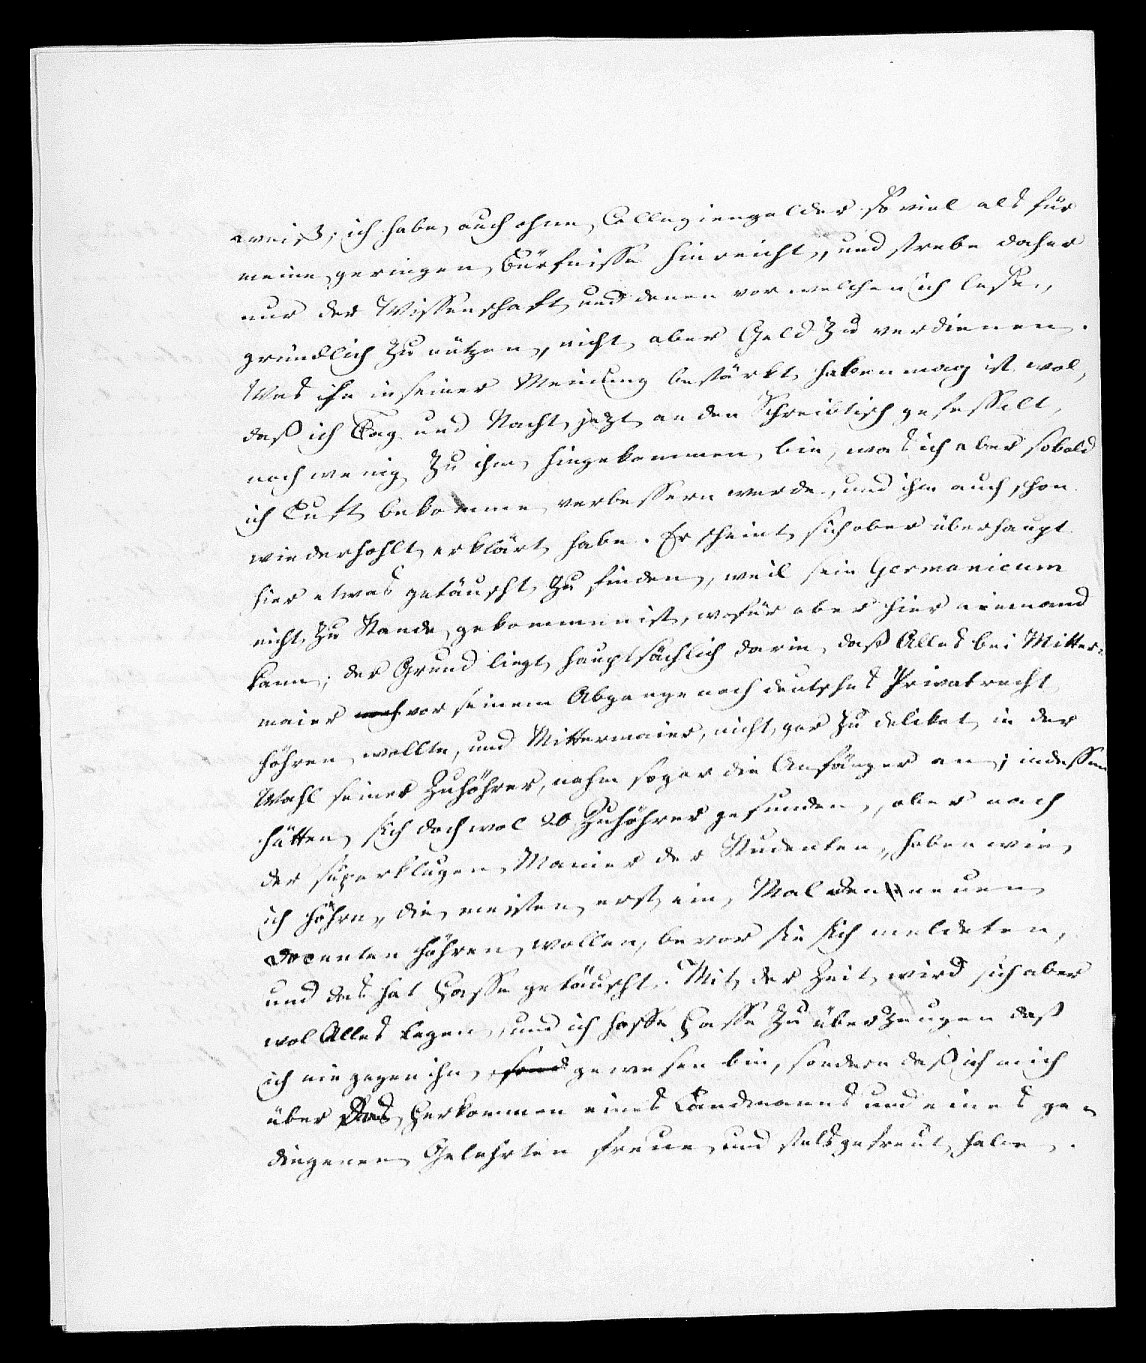 weiß; ich habe, auch ohne Collegiengelder so viel als für
meine geringen Bürfnisse hinreicht, und strebe daher
nur der Wissenschaft und denen vor welchen ich lese,
gründlich zu nützen, nicht aber Geld zu verdienen.
Was ihn in seiner Meinung bestärkt haben mag ist wol,
daß ich Tag und Nacht jezt an den Schreibtisch gefesselt,
noch wenig zu ihm hingekommen bin, was ich aber sobald
ich Luft bekomme verbessern werde, und ihm auch schon
wiederhohlt erklärt habe. Er scheint sich aber überhaupt
hier etwas getäuscht zu finden, weil sein Germanicum
nicht zu Stande gekommen ist, wofür aber hier niemand
kann; der Grund liegt hauptsächlich darin, daß Alles bei Mitter-
maier noch vor seinem Abgange noch deutsches Privatrecht
höhren wollte, und Mittermaier, nicht gar zu delikat in der
Wahl seiner Zuhöhrer, nahm sogar die Anfänger an; indessen
hätten sich doch wol 20 Zuhöhrer gefunden, aber nach
der superklugen Manier der Studenten, haben wie
ich höhre, die meisten erst ein Mal den neuen
Docenten höhren wollen, bevor sie sich meldeten,
und das hat Hasse getäuscht. Mit der Zeit wird sich aber
wol Alles legen, und ich hoffe Hasse zu überzeugen daß
ich nie gegen ihn sond gewesen bin, sondern daß ich mich
über das Herkommen eines Landmanns und eines ge-
diegenen Gelehrten freue und stets gefreut habe.